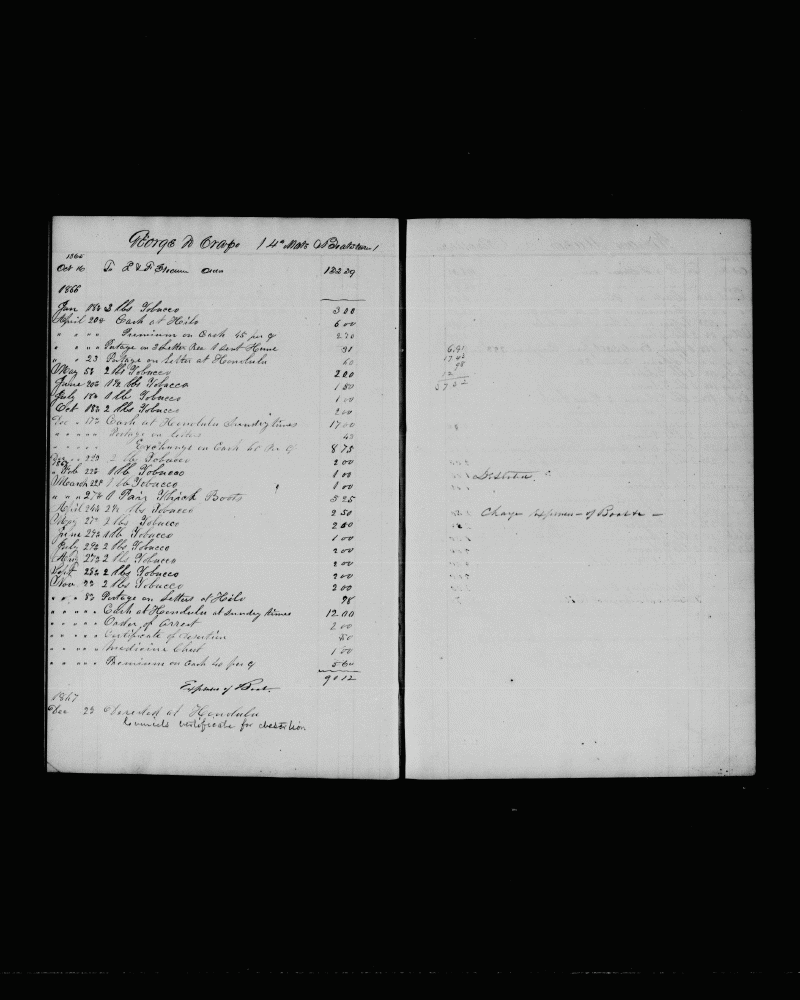 George N Crapo / 4th Mate Boatsteerer /
1865
Oct 16 To L & F 132 59
1866
Jan 18th 2 lbs Tobacco 3 00
April 20th Cash at Hilo 6 00
" " " " Premium on Cash 45 per % 2 70
" " " " Postage on 3 Letter Rec 1 Sent Home 31
" " 23 Postage on Letter at Honolulu 60
May 5th 2 lbs Tobacco 2 00
June 20th 1 1/2 lbs Tobacco 1 50
July 18th 1 lb Tobacco 1 00
Oct 18th 2 lbs Tobacco 2 00
Dec " 17th Cash at Honolulu Sundry times 17 00
" " " " " Postage on Letters 45
" " " " " Exchange on Cash 50 Per % 8 75
Dec " 2 lbs Tobacco 2 00
1867
" Feb 22th 1 lb Tobacco 1 00
March 22th 1 lb Tobacco 1 00
" " " 27th 1 Pair Thick Boots 5 25
April 24th 2 1/2 lbs Tobacco 2 50
May 27th 2 lbs Tobacco 2 00
June 29th 1 lb Tobacco 1 00
July 29th 2 lbs Tobacco 2 00
Aug 27th 2 lbs Tobacco 2 00
Sept 25th 2 lbs Tobacco 2 00
Nov 2 lbs Tobacco 2 00
" " " Postage on Letters at Hilo 98
" " " " " Cash at Honolulu at Sundry times 12 00
" " " " " Order of Arrest 2 00
" " " " " Certificate of Desertion 50
" " " " Medicine Chest 1 00
" " " " Premium on Cash 40 per %
90 12
Expenses of Boat
1867
Dec 23 Deserted at Honolulu
certificate for desertion
Deserted
Charge Expenses of Boat &c